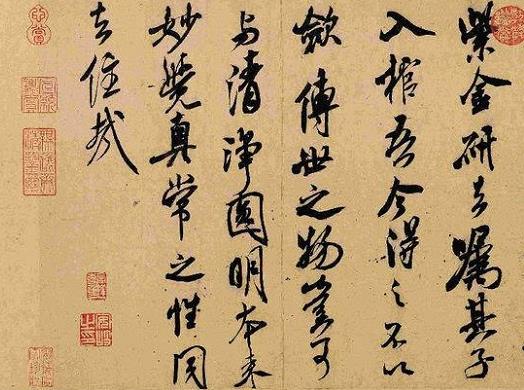 紫金研去嘱其子
入棺吾今得之不以
斂傳世之物豈可
与清淨圓明本来
妙覺真常之性同
去住哉